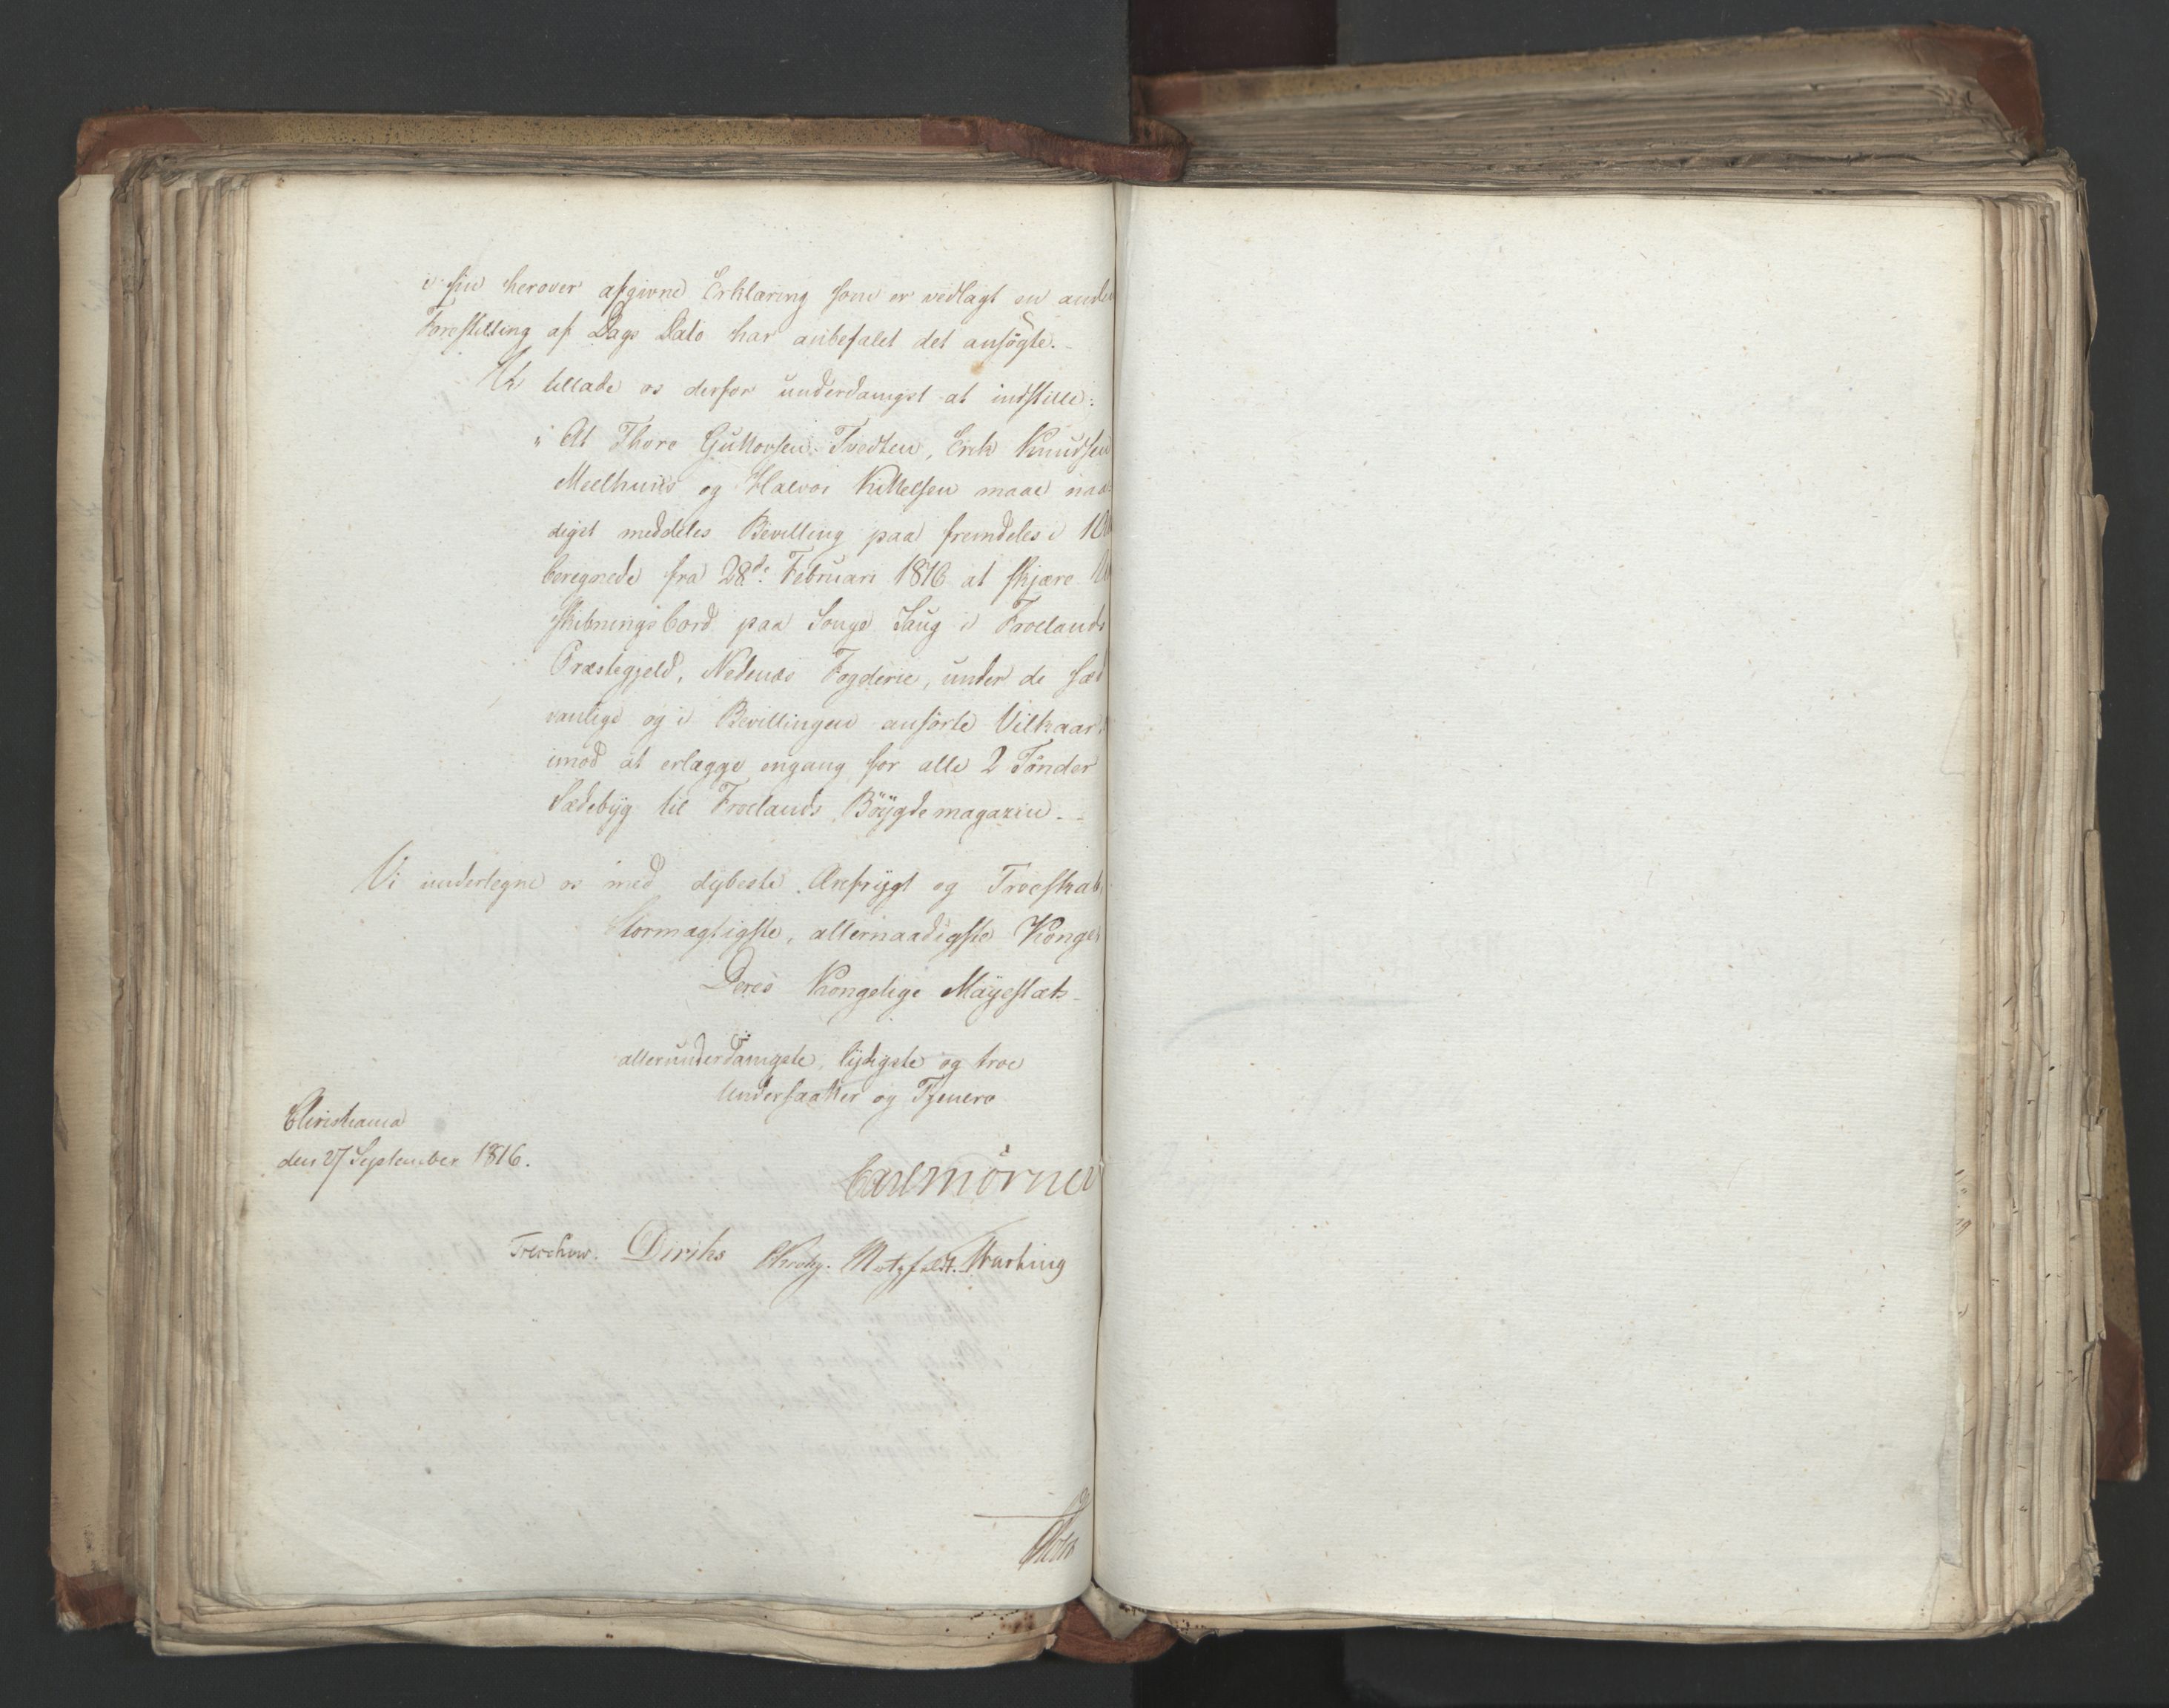 i sin herover afgivne Erklæring som er vedlagt en anden
Forestilling af Dags Dato har anbefalet det ansøgte. -
Vi tillade os derfor underdanigst at indstille:
" At Thore Guttorsen Tvedten, Erik Knudsen
Meelhuus og Halvor Kittelsen maae naa-
digst meddeles Bevilling paa fremdeles i
beregnede fra 28de Februari 1816 at skjære
skibningsbord paa Songe Saug i Froelands
Præstegjeld, Nedenæs Fogderie, under de sæd
vanlige og i Bevillingen anførte Vilkaar
imod at erlægge engang for alle 2 Tønder
Sædebÿg til Froelands Böÿgdemagazin. -
Vi undertegne os med dybeste Ærefrÿgt og Troeskab
Stormægtigste, allernaadigste Konge
Deres Kongelige Mayestæts
allerunderdanigste, lydigste og troe
Undersaatter og Tjenere
Christiania
den 27 September 1816.
Carl Mörner
Treschow. Diriks Krohg. Motzfeldt.